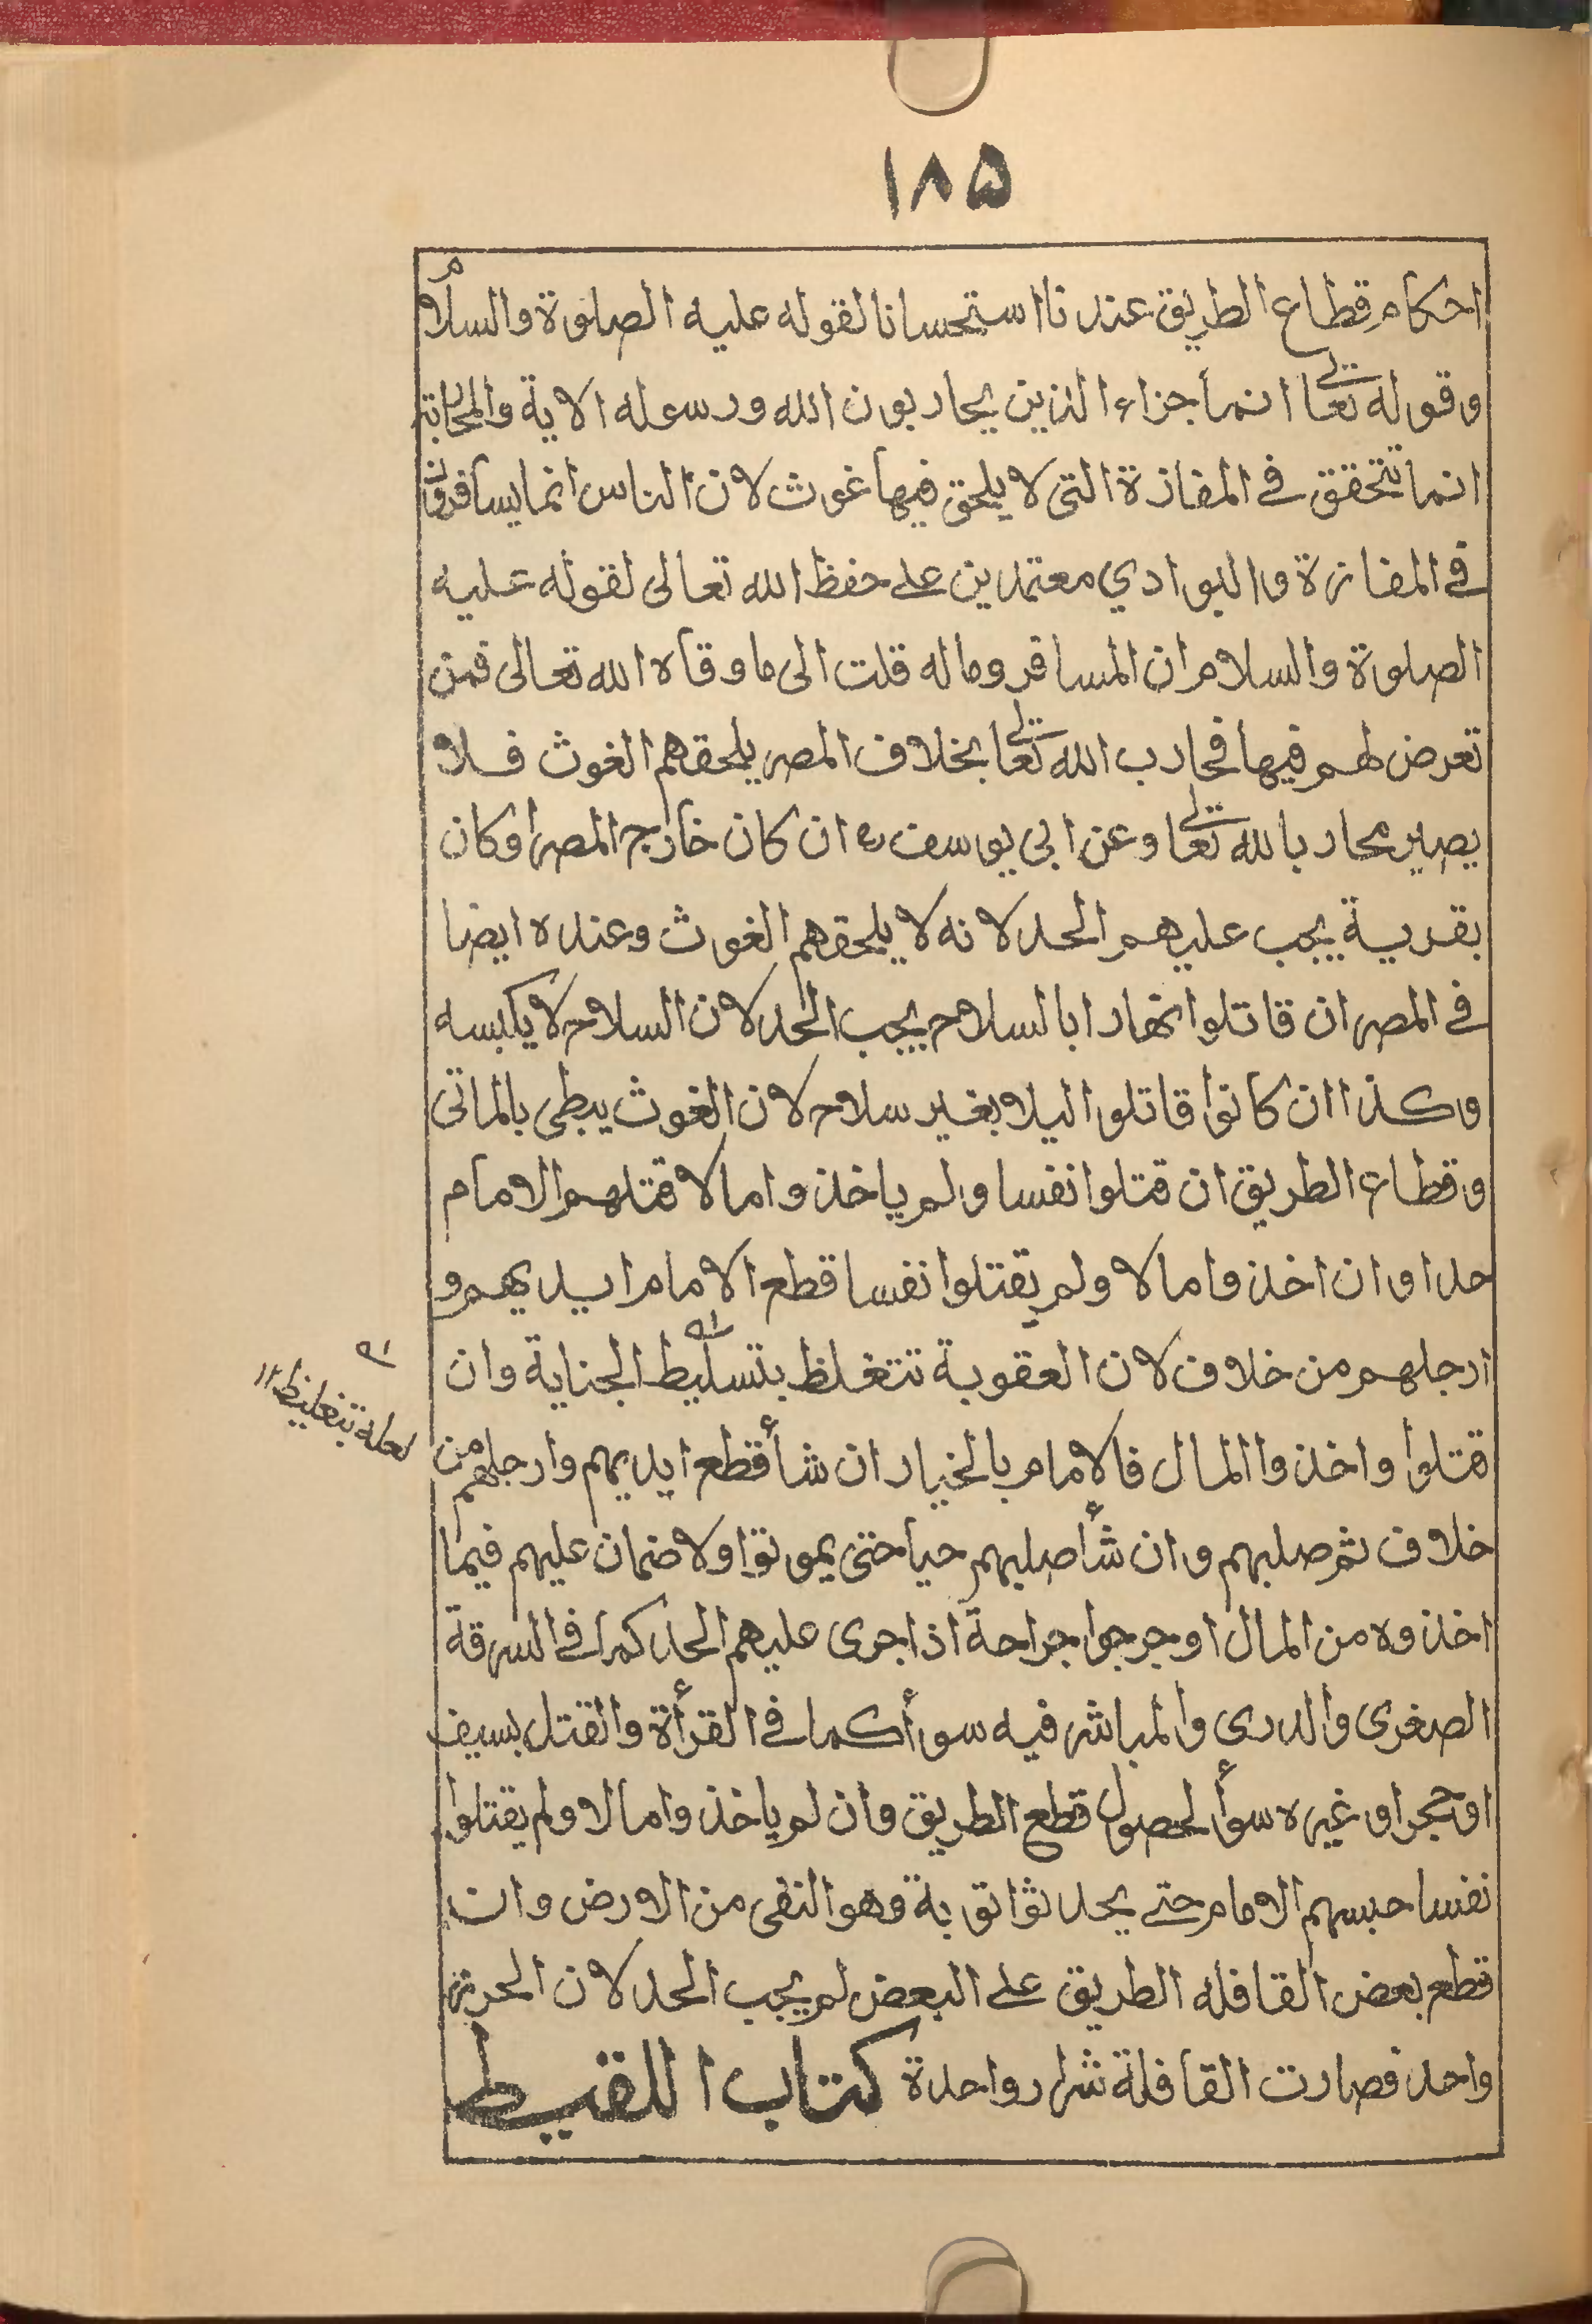 ١٨٥
احكام قطاع الطريق عندنا استحسانا لقوله عليه الصلوة والسلام
وقوله تعالى انما جزاء الذين يحاربون الله ورسوله الاية والمحاربة
انما تتحقق في المفازة التى لا يلحق فيها غوث لان الناس انما يسافرون
في المفازة والبوادي معتمدين على حفظ الله تعالى لقوله عليه
الصلوة والسلام ان المسافر وماله قلت الى ما وقاه الله تعالى فمن
تعرض لهم فيها فحارب الله تعالى بخلاف المصر يلحقهم الغوث فلا
يصير محاربا لله تعالى وعن ابى يوسف ره ان كان خارج المصر اوكان
بقرية يجب عليهم الحد لانه لا يلحقهم الغوث وعنده ايضا
في المصر ان قاتلوا نهارا بالسلاح يجب الحد لان السلاح لا يكبسه
وكذا ان كانوا قاتلوا ليلا بغير سلاح لان الغوث يبطى بالماتى
وقطاع الطريق ان قتلوا نفسا ولم ياخذوا مالا قتلهم الامام
حدا وان اخذوا مالا ولم يقتلوا نفسا قطع الامام ايديهم و
ارجلهم من خلاف لان العقوبة تتغلظ بتسليط الجناية وان
لعله بتغليظ ١٢
قتلوا واخذوا المال فالامام بالخيار ان شأ قطع ايديهم وارجلهم من
خلاف ثم صلبهم وان شأ صلبهم حيا حتى يموتوا ولا ضمان عليهم فيما
اخذوه من المال او جرحوا جراحة اذا جرى عليهم الحد كما في السرقة
الصغرى والدرى والمباشر فيه سوأ كما في القرأة والقتل بسيف
اوحجر او غيره سوأ لحصول قطع الطريق وان لم ياخذوا مالا ولم يقتلوا
نفسا حبسهم الامام حتى يحدثوا توبة وهو النفى من الارض وان
قطع بعض القافله الطريق على البعض لم يجب الحد لان الحرز
واحد فصارت القافلة شرار واحدة كتاب اللقيط